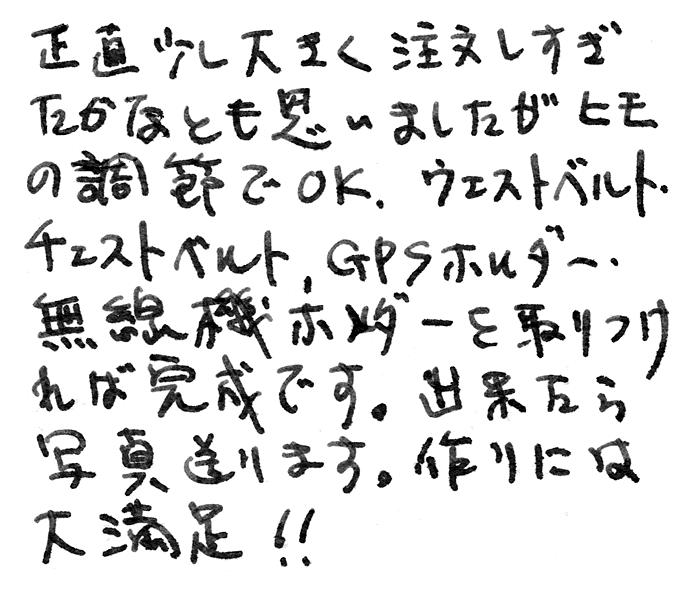 正直少し大きく注文しすぎ
たかなとも思いましたがヒモ
の調節でOK. ウエストベルト.
チェストベルト, GPSホルダー.
無線機ホルダーを取りつけ
れば完成です。出来たら
写真送ります。作りには
大満足!!